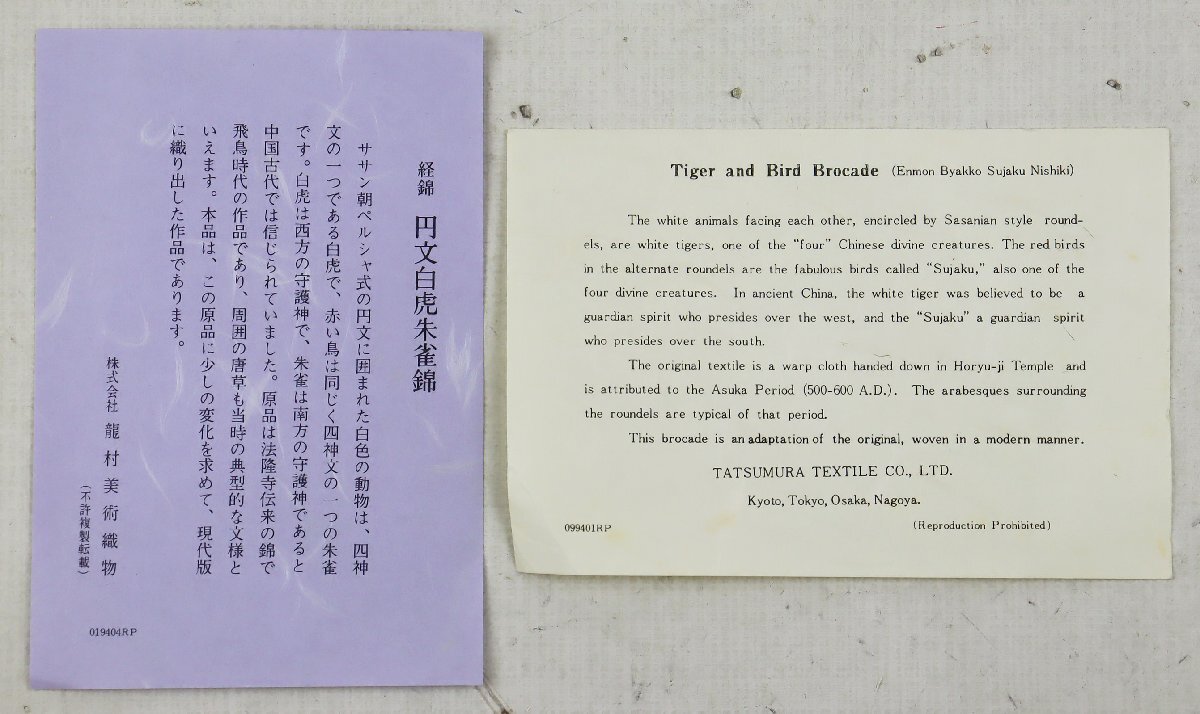 経錦 円文白虎朱雀錦
ササン朝ペルシャ式の円文に囲まれた白色の動物は、四神
文の一つである白虎で、赤い鳥は同じく四神文の一つの朱雀
です。白虎は西方の守護神で、朱雀は南方の守護神であると
中国古代では信じられていました。原品は法隆寺伝来の錦で
飛鳥時代の作品であり、周囲の唐草も当時の典型的な文様と
いえます。本品は、この原品に少しの変化を求めて、現代版
に織り出した作品であります。
株式会社 龍村美術織物
(不許複製転載)
019404RP
Tiger and Bird Brocade (Enmon Byakko Sujaku Nishiki)
The white animals facing each other, encircled by Sasanian style round-
els, are white tigers, one of the "four" Chinese divine creatures. The red birds
in the alternate roundels are the fabulous birds called "Sujaku," also one of the
four divine creatures. In ancient China, the white tiger was believed to be a
guardian spirit who presides over the west, and the "Sujaku" a guardian spirit
who presides over the south.
The original textile is a warp cloth handed down in Horyu-ji Temple and
is attributed to the Asuka Period (500-600 A.D.). The arabesques surrounding
the roundels are typical of that period.
This brocade is an adaptation of the original, woven in a modern manner.
TATSUMURA TEXTILE CO., LTD.
Kyoto, Tokyo, Osaka, Nagoya.
099401RP
(Reproduction Prohibited)